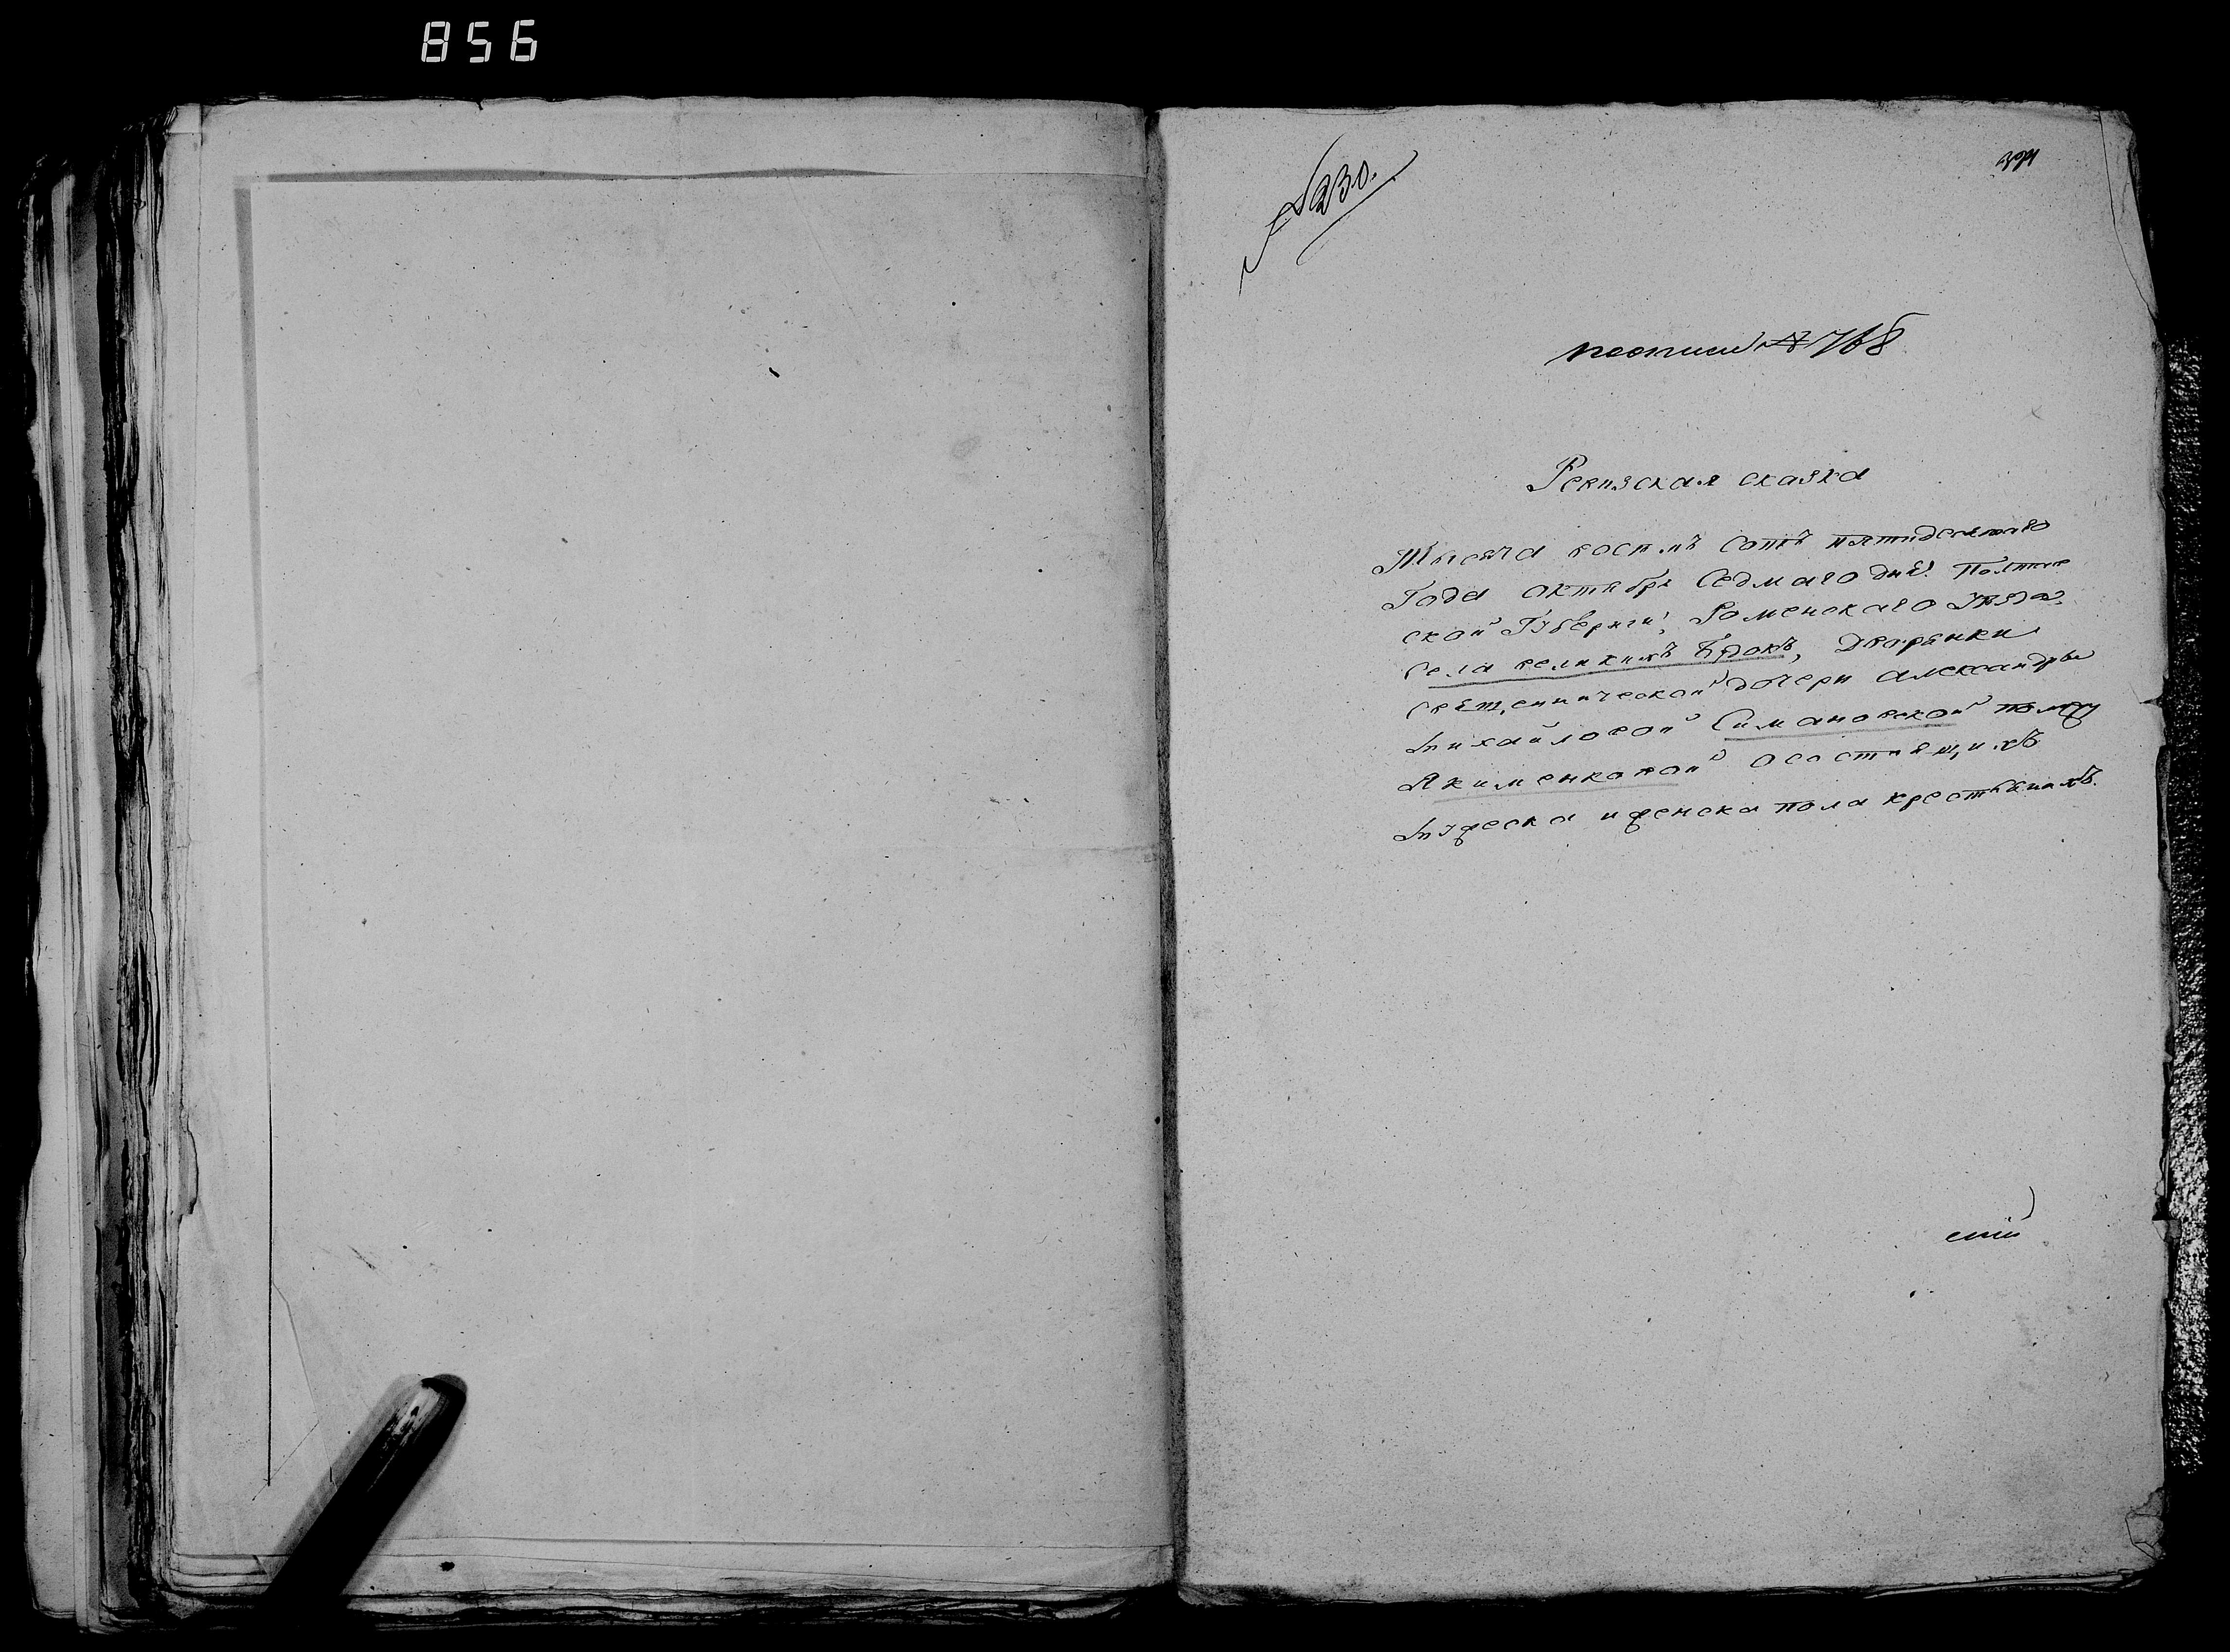 856
№ 230.
по описи № 768
Ревизская сказка
Тысяча восемъ сотъ пятидесятаго
Года октября Седмаго дня. Полтав
ской Губернии, Роменскаго Уезда
Села великихъ Будокъ, Дворянки
священической дочери Александры
Михайловой Симановской по мужу
Якименковой о состоящихъ
мужеска и женска пола крестьянахъ.